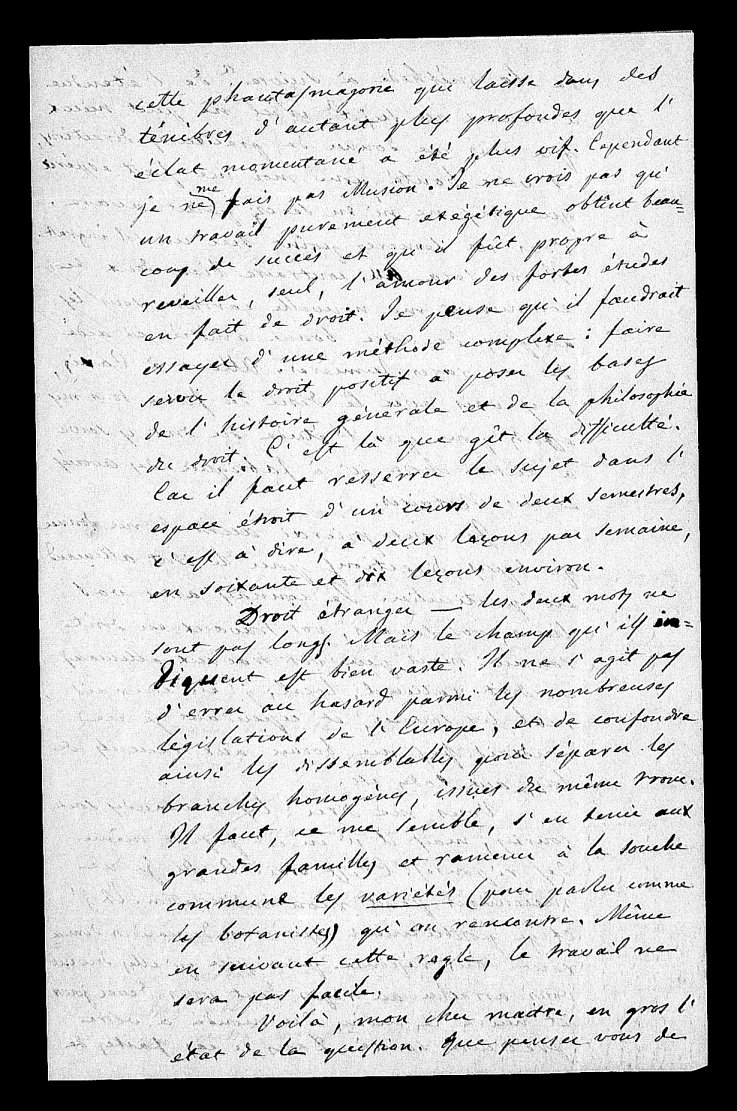 cette phantasmagorie qui laisse dans des
ténèbres d'autant plus profondes que l'
éclat momentané a été plus vif. Cependant
je ne me fais pas illusion. Je ne crois pas qu'
un travail purement exégétique obtînt beau=
coup de succès et qu'il fût propre à
reveiller, seul, l'amour des fortes études
en fait de droit. Je pense qu'il faudrait
essayer d'une méthode complexe : faire
servir le droit positif à poser les bases
de l'histoire générale et de la philosophie
du droit. C'est là que gît la difficulté.
Car il faut resserrer le sujet dans l'
espace étroit d'un cours de deux semestres,
c'est à dire, à deux leçons par semaine,
en soixante et dix leçons environ.
Droit étranger — les deux mots ne
sont pas longs. Mais le champ qu'ils in=
diquent est bien vaste. Il ne s'agit pas
d'errer au hasard parmi les nombreuses
législations de l'Europe, et de confondre
ainsi les dissemblables pour séparer les
branches homogènes, issues du même tronc.
Il faut, ce me semble, s'en tenir aux
grandes familles et ramener à la souche
commune les variétés (pour parler comme
les botanistes) qu'on rencontre. Même
en suivant cette regle, le travail ne
sera pas facile.
Voilà, mon cher maitre, en gros l'
état de la question. Que penser vous de